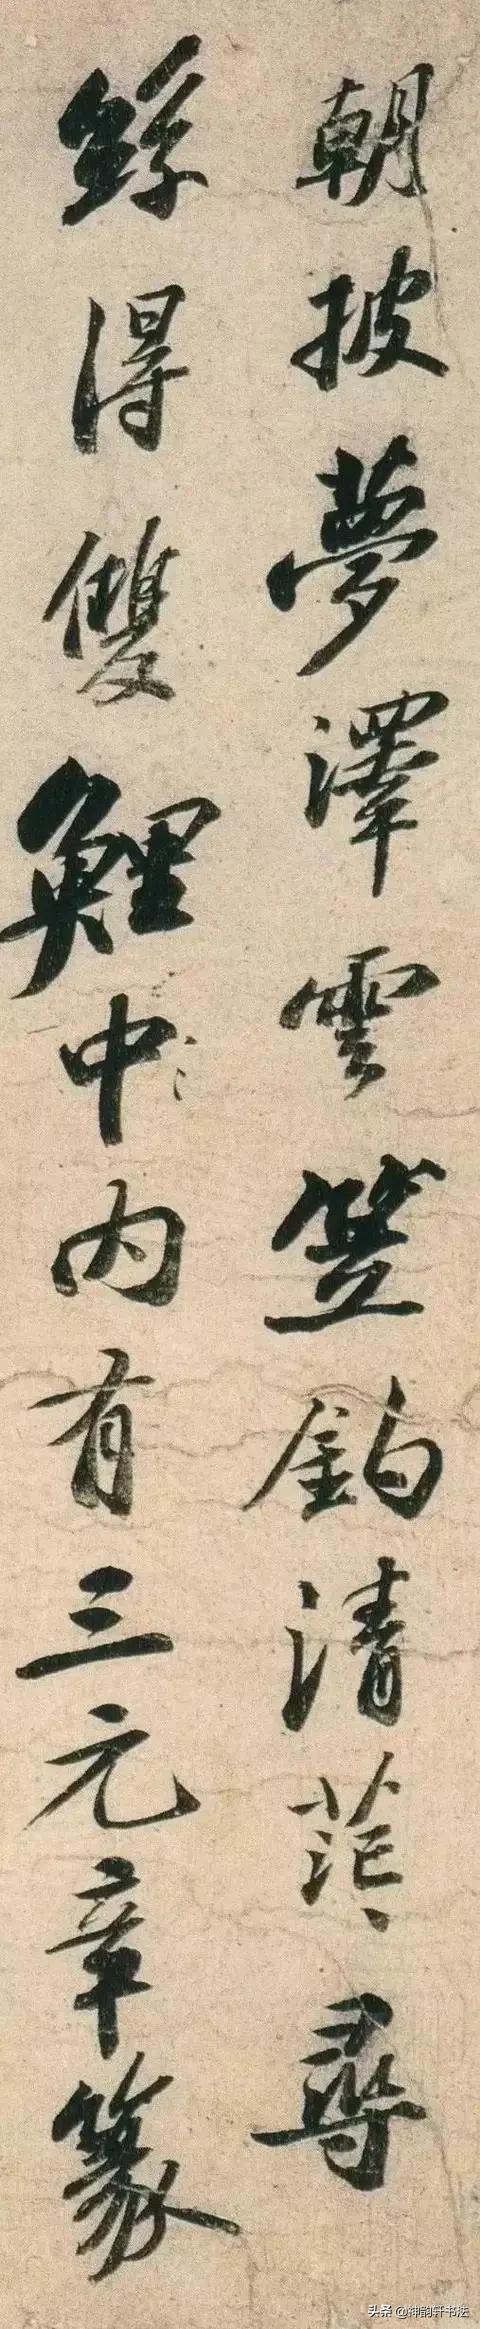 朝披夢澤雲笠釣清茫〻尋
絲得雙鯉中〻內有三元章篆
头条 @神韵轩书法